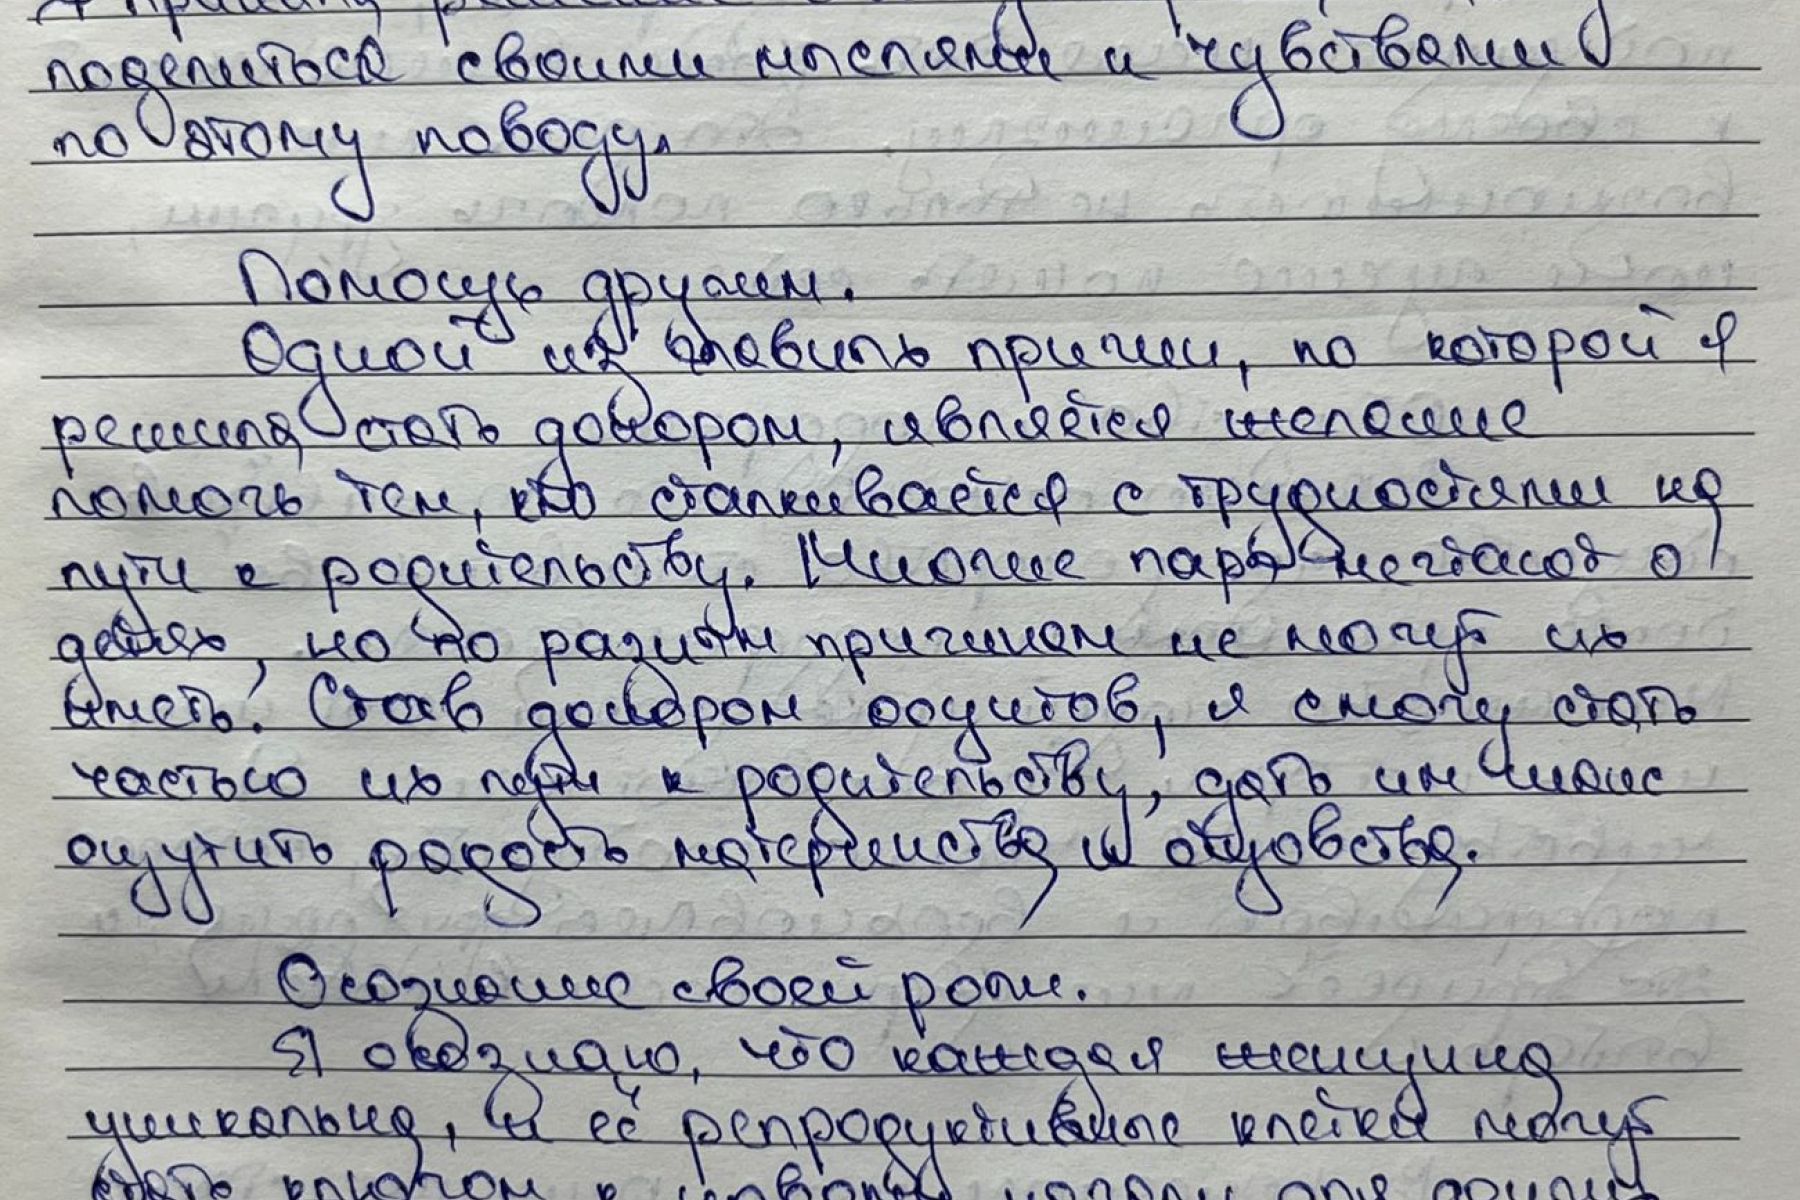 поделиться своими мыслями и чувствами
по этому поводу.
Помощь другим.
Одной из главных причин, по которой я
решила стать донором, является желание
помочь тем, кто сталкивается с трудностями на
пути к родительству. Многие пары мечтают о
детях, но по разным причинам не могут их
иметь. Став донором ооцитов, я смогу стать
частью их пути к родительству, дать им шанс
ощутить радость материнства и отцовства.
Осознание своей роли.
Я осознаю, что каждая женщина
уникальна, и её репродуктивные клетки могут
стать ключом к новому началу для других